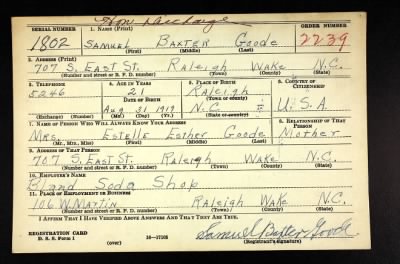 Hon Discharge
SERIAL NUMBER 1. NAME (Print) ORDER NUMBER
1802 SAMUEL BAXTER Goode 2239
(First) (Middle) (Last)
2. ADDRESS (Print)
707 S. EAST ST. Raleigh Wake N.C.
(Number and street or R. F. D. number) (Town) (County) (State)
3. TELEPHONE 4. AGE IN YEARS 5. PLACE OF BIRTH 6. COUNTRY OF CITIZENSHIP
5246 21 Raleigh
DATE OF BIRTH (Town or county)
Aug 31 1919 N.C. U.S.A
(Exchange) (Number) (Mo.) (Day) (Yr.) (State or country)
7. NAME OF PERSON WHO WILL ALWAYS KNOW YOUR ADDRESS 8. RELATIONSHIP OF THAT PERSON
Mrs. Estelle Esther Goode Mother
(Mr., Mrs., Miss) (First) (Middle) (Last)
9. ADDRESS OF THAT PERSON
707 S. EAST ST. Raleigh Wake N.C.
(Number and street or R. F. D. number) (Town) (County) (State)
10. EMPLOYER'S NAME
Bland Soda Shop
11. PLACE OF EMPLOYMENT OR BUSINESS
106 W. Martin Raleigh Wake N.C.
(Number and street or R. F. D. number) (Town) (County) (State)
I AFFIRM THAT I HAVE VERIFIED ABOVE ANSWERS AND THAT THEY ARE TRUE.
REGISTRATION CARD
D. S. S. Form 1 16-17105 Samuel Baxter Goode
(over) (Registrant's signature)